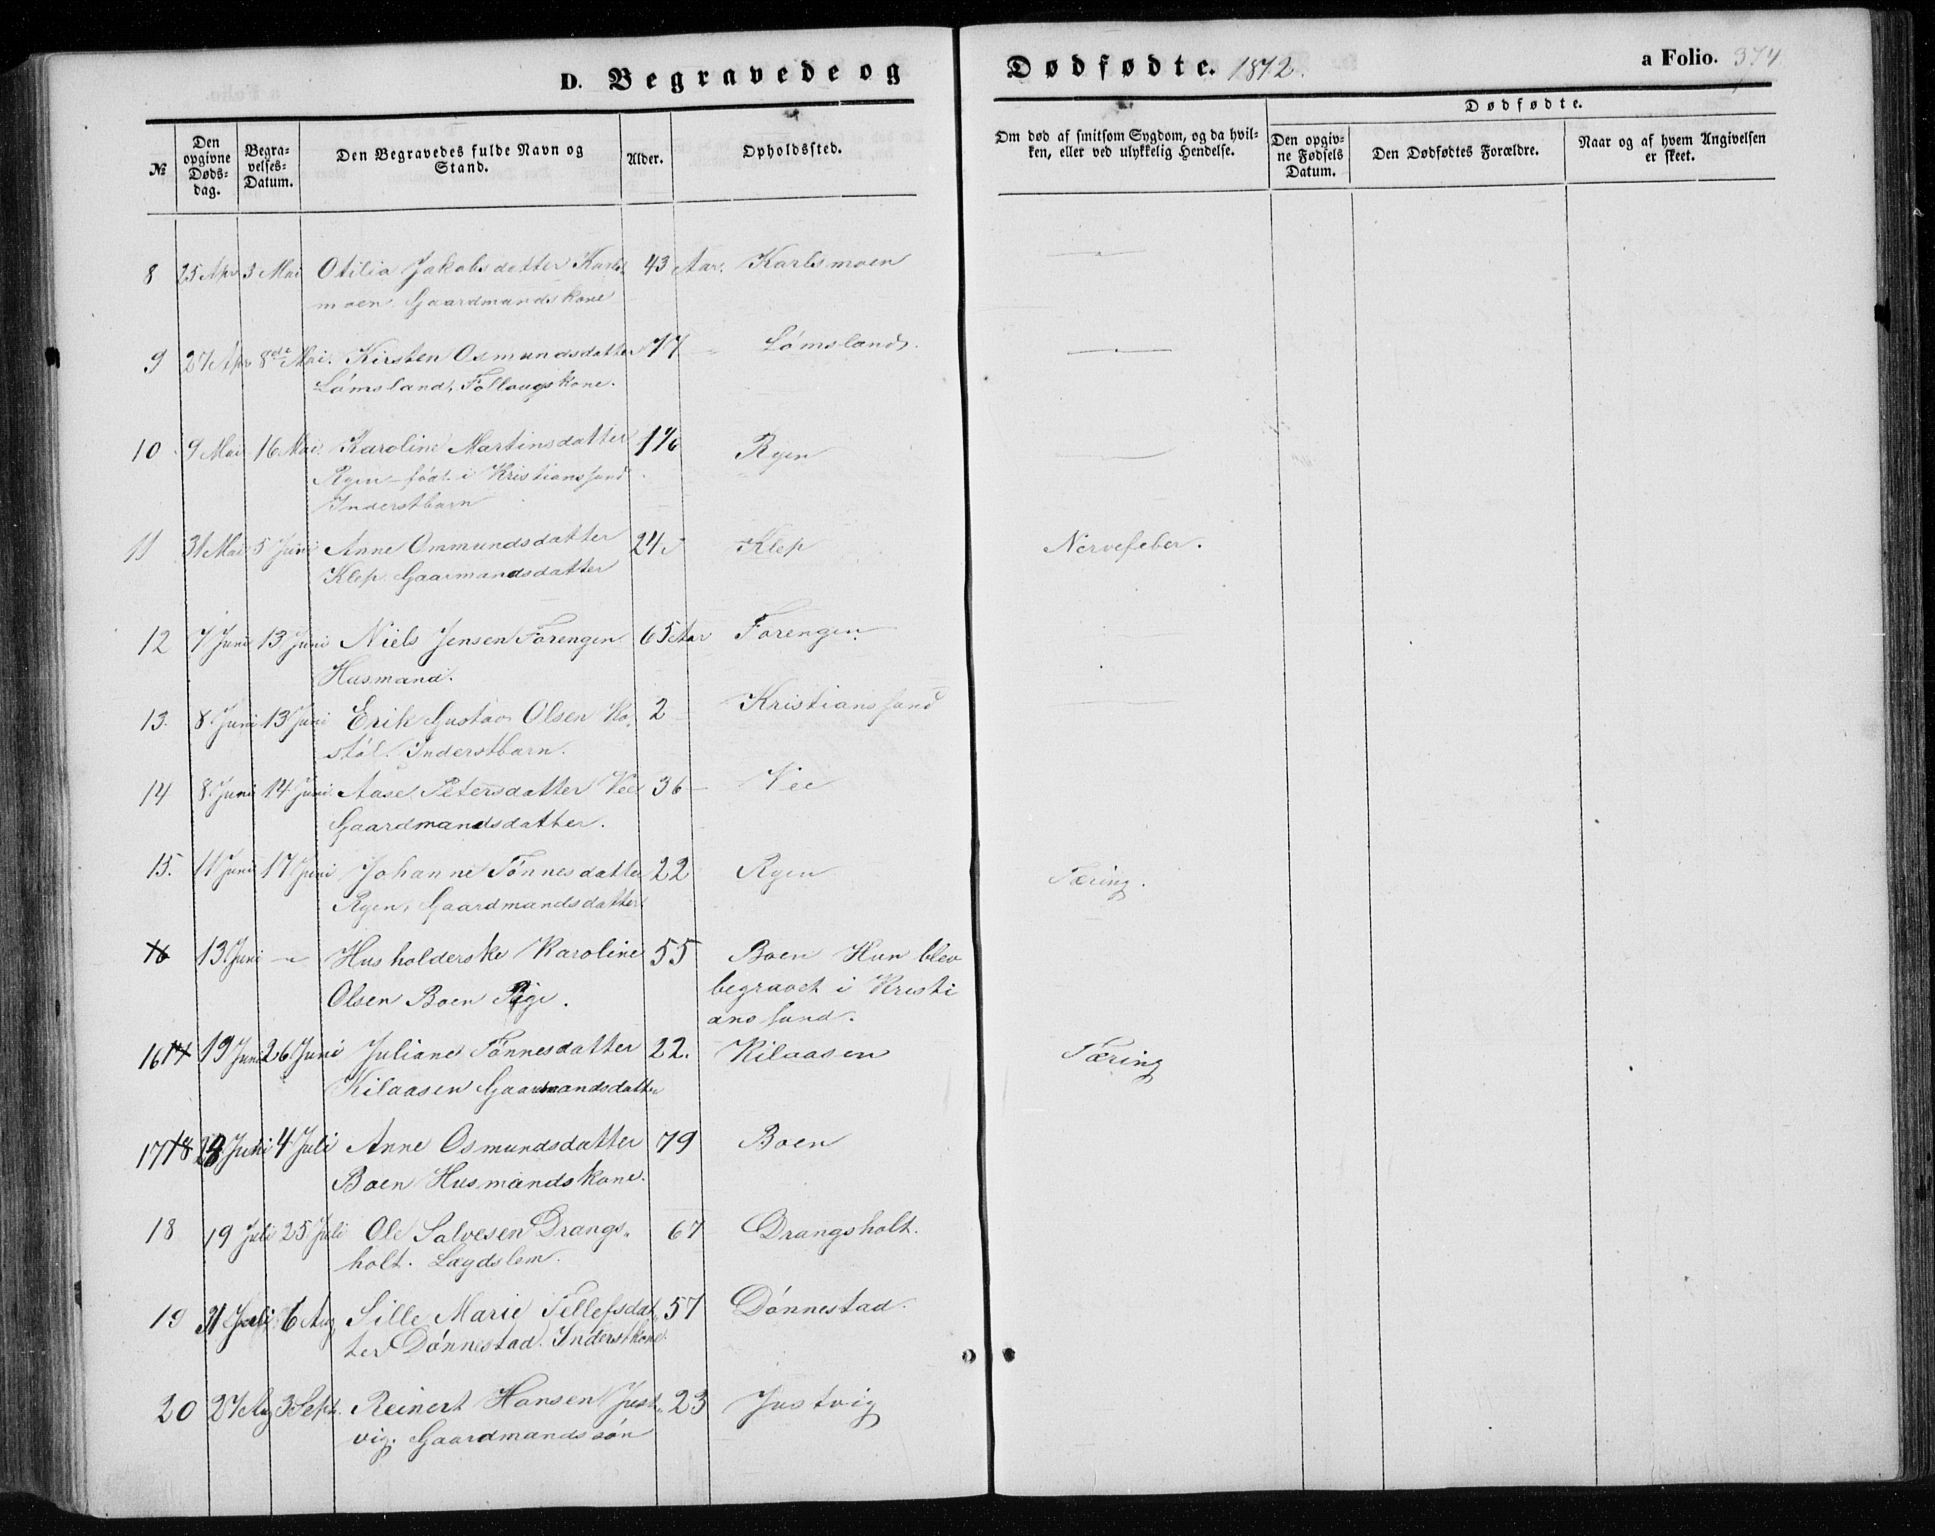 D. Begravede og Dødfødte. 1872. a Folio. 374
Dødfødte.
№ Den opgivne Døds-dag. Begra-velses-Datum. Den Begravedes fulde Navn og Stand. Alder. Opholdssted. Om død af smitsom Sygdom, og da hvil-ken, eller ved ulykkelig Hendelse. Den opgiv-ne Fødsels Datum. Den Dødfødtes Forældre. Naar og af hvem Angivelsen er skeet.
8 25 Apr 3 Mai Otilia Jakobsdatter Karls- 43 Aar. Karlsmoen
moen. Gaardmandskone
9 27 Apr 8de Mai. Kirsten Osmundsdatter 77 Lømsland.
Lømsland, Føllaugskone.
10 9 Mai 16 Mai. Karoline Martinsdatter Ryen
Ryen født i Kristianssand.
Inderstbarn
11 31 Mai 5 Juni Anne Ommundsdatter 24 Klep Nervefeber.
Klep. Gaarmandsdatter
12 7 Juni 13 Juni Niels Jensen Forengen 65 Aar Forengen
Husmand.
13. 8 Juni 13 Juni Erik Gustav Olsen Ko- 2 Kristianssand
støl. Inderstbarn.
14 8 Juni 14 Juni. Aase Petersdatter Vee 36 Vee
Gaardmandsdatter.
15. 11 Juni 17 Juni Johanne Tønnesdatter 22 Ryen Tæring.
Ryen, Gaardmandsdatter
16 13 Juni Husholderske Karoline 55 Boen Hun blev
Olsen Boen Pige. begravet i Kristi
anssand.
16 17 19 Juni 26 Juni Juliane Tønnesdatter 22. Kilaasen Tæring
Kilaasen Gaarmandsdatter
17 18 28 Juni 4 Juli Anne Osmundsdatter 79 Boen
Boen Husmandskone.
18 19 Juli 25 Juli Ole Salvesen Drangs- 67 Drangsholt.
holt. Lægdslem.
19 31 Juli 6 Aug Sille Marie Tellefsdat- 57 Dønnestad.
ter Dønnestad. Inderstkone.
20 27 Aug 3 Sept. Reinert Hansen Just- 23 Justvig
vig. Gaardmandssøn